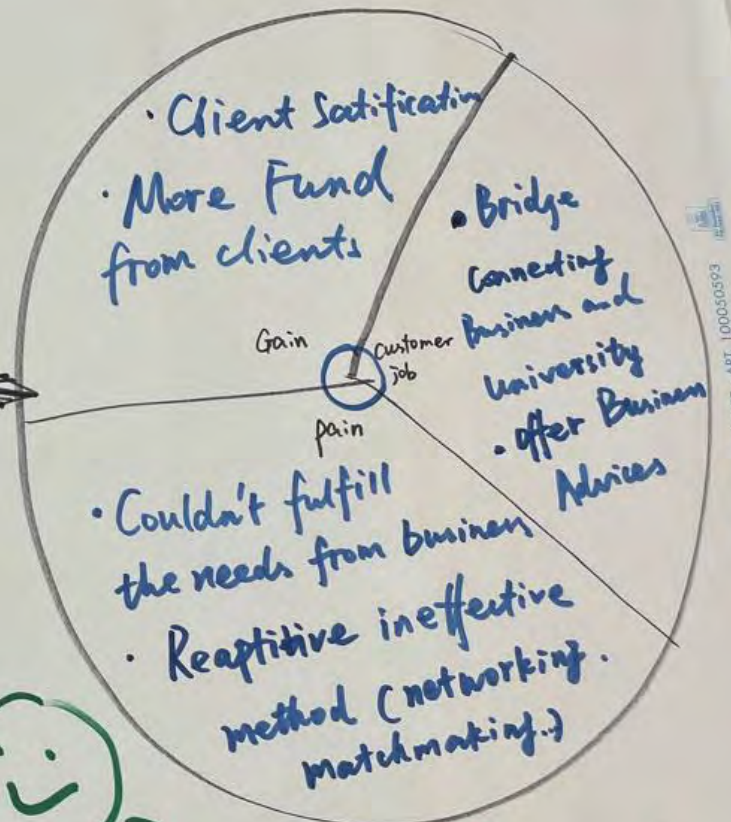 · Client Satification
· More Fund
from clients
Gain
customer
job
pain
· Bridge
Connecting
Business and
university
· offer Business
Advices
· Couldn't fulfill
the needs from business
· Reaptitive ineffective
method (networking.
matchmaking..)
100050593